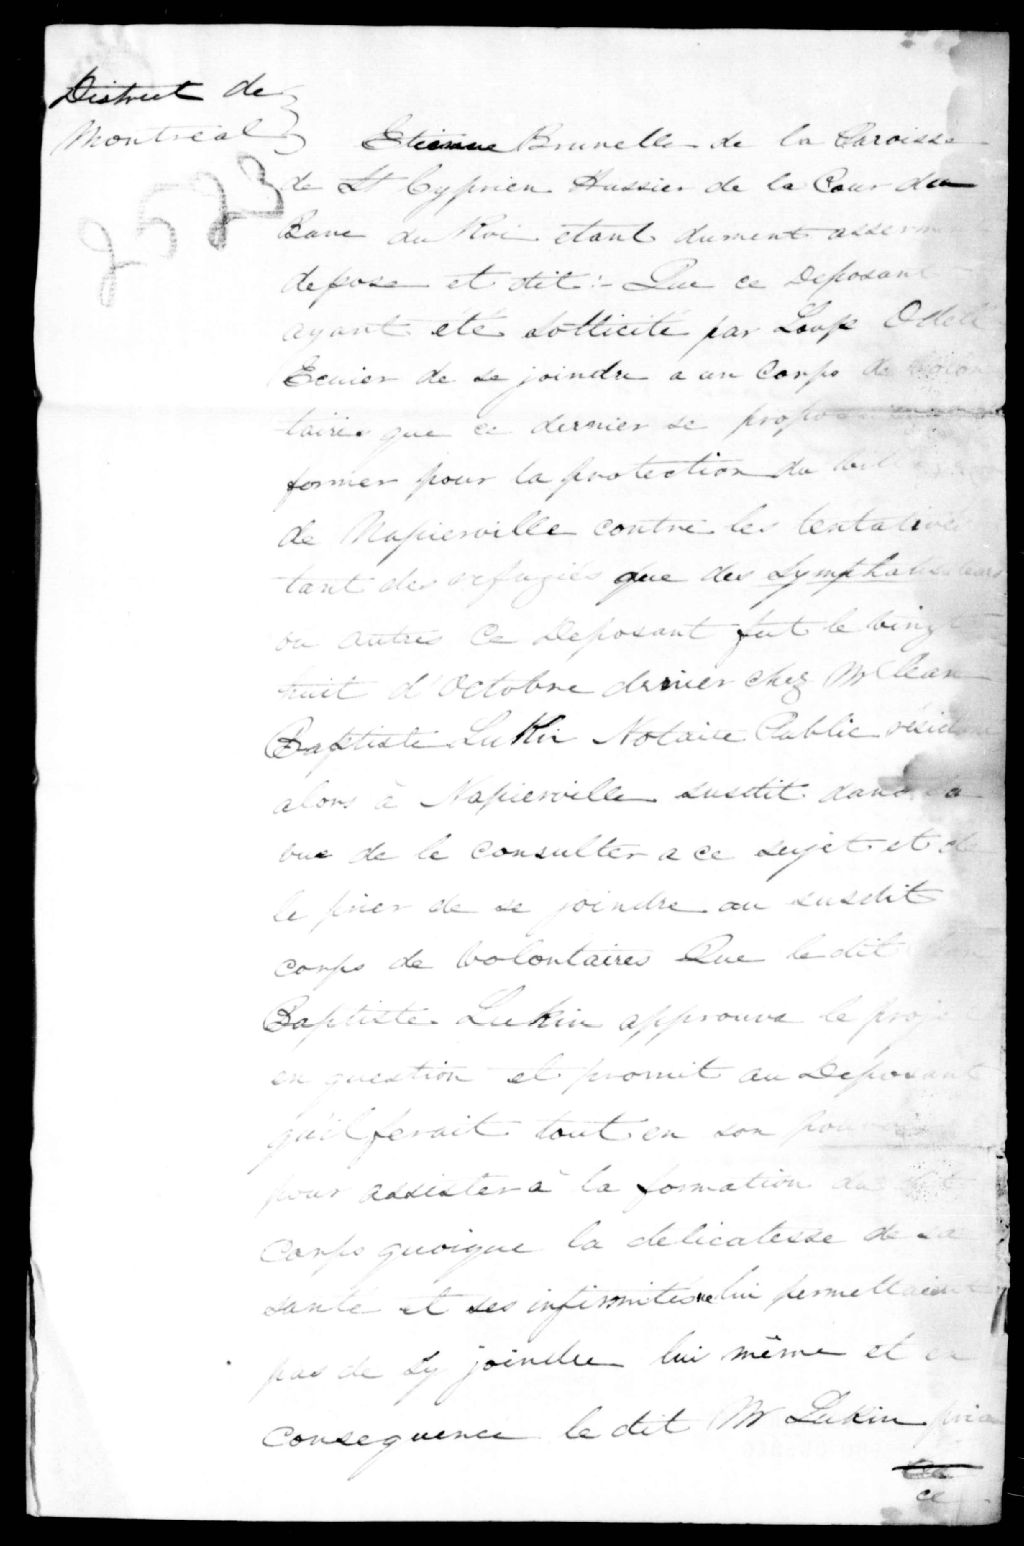 District de
Montréal
2523
Etienne Brunelle de la Paroisse
de St Cyprien Hussier de la Cour du
Banc du Roi etant dument asserm
depose et dit :- Que ce Deposant
ayant eté sollicité par Loup Odell
Ecuier de se joindre a un Corps de Volon
taires que ce dernier se propo
former pour la protection du vill
de Napierville contre les tentatives
tant des refugiés que des Symphatisateurs
ou autres Ce Deposant fut le vingt
huit d'Octobre dernier chez Mr Jean
Baptiste Lukin Notaire Public résidant
alors à Napierville susdit dans la
vue de le consulter a ce sujet et de
le prier de se joindre au susdit
corps de Volontaires Que le dit Jean
Baptiste Lukin approuva le projet
en question et promit au Deposant
qu'il ferait tout en son pouvoir
pour assister à la formation du dit
Corps quoique la delicatesse de sa
santé et ses infirmités ne lui permettaient
pas de s'y joindre lui même et en
consequence le dit Mr Lukin pria
ce